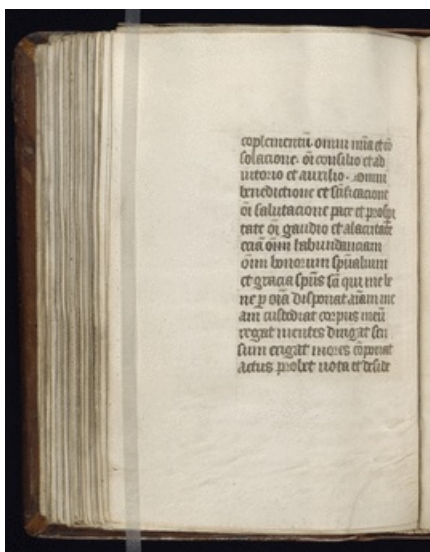 coplementū omni mīa et cō
solacione oī consilio et ad
iutorio et auxilio omni
benedictione et sāficacione
oī salutacione pace et prospi
tate oī gaudio et alacritate
eciā oīm habundanciam
oīm bonorum spūalium
et gracia spūs sā qui me be
ne p oīa disponat aīam me
am custodiat corpus meū
regat mentes dirigat sen
sum erigat mores cōponat
actus probet uota et deside